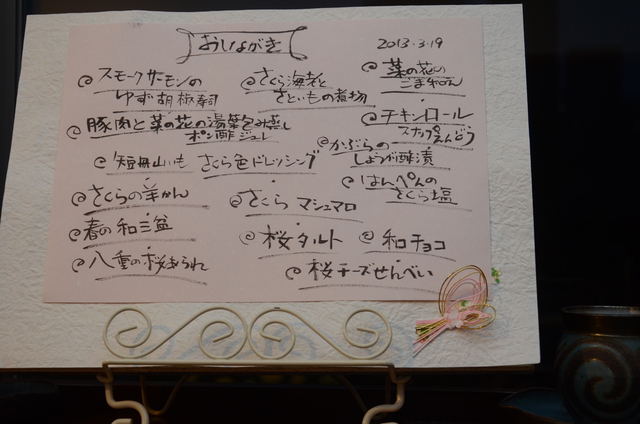 おしながき
2013・3・19
スモークサーモンの
ゆず胡椒寿司
さくら海老と
さといもの煮物
菜の花の
ごま和え
豚肉と菜の花の湯葉包み蒸し
ポン酢ジュレ
チキンロール
スナップえんどう
短冊山いも さくら色ドレッシング
かぶらの
しょうが酢漬
はんぺんの
さくら塩
さくらの羊かん
さくら マシュマロ
春の和三盆
桜タルト
和チョコ
八重の桜あられ
桜チーズせんべい